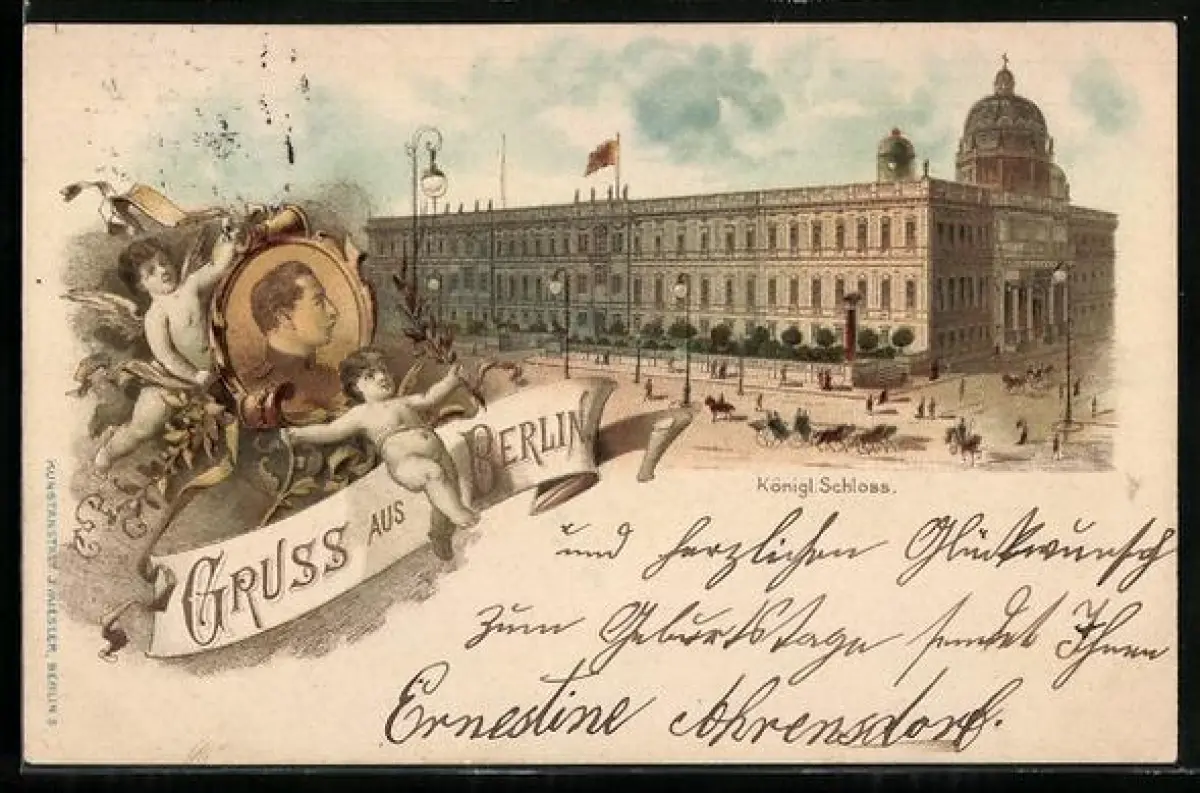 GRUSS AUS BERLIN
Königl. Schloss.
und herzlichen Glückwunsch
zum Geburtstage sendet Ihnen
Ernestine Ahrensdorf.
KUNSTANSTALT J. MIESLER, BERLIN S.